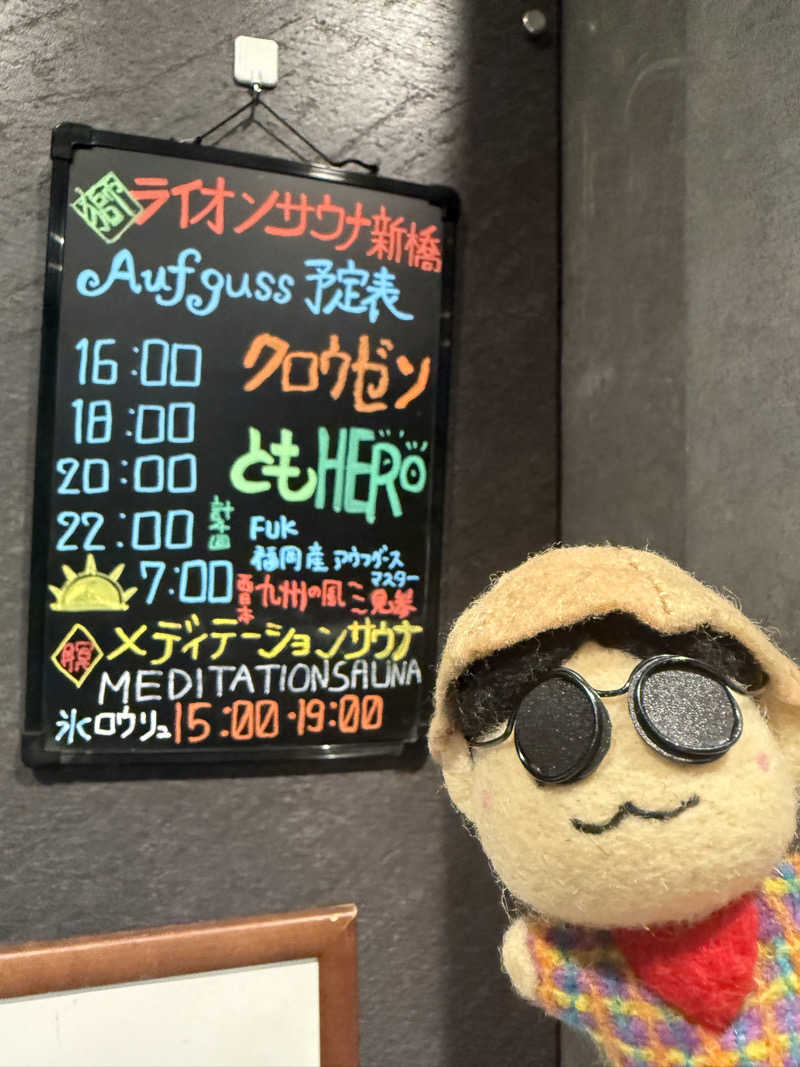 獅 ライオンサウナ新橋
Aufguss 予定表
16:00 クロウゼン
18:00
20:00 ともHERO
22:00 FUK
福岡産 アウフグースマスター
7:00 西日本 九州の風 三見拳
瞑 メディテーションサウナ
MEDITATIONSAUNA
氷ロウリュ 15:00・19:00